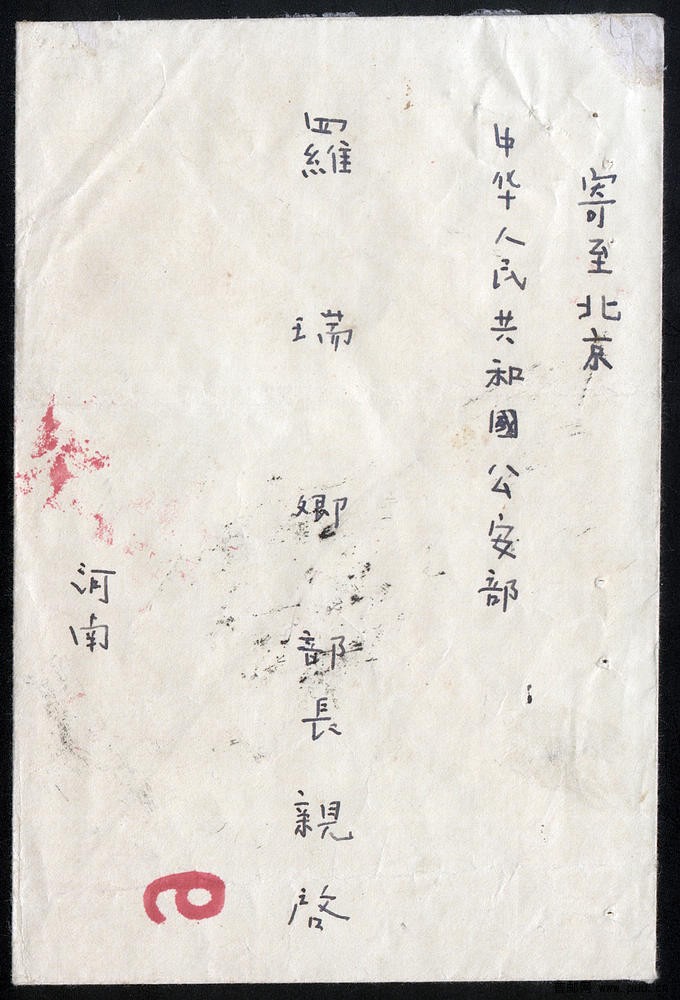 寄至北京
中华人民共和國公安部
羅瑞卿部長親啓
河南
9